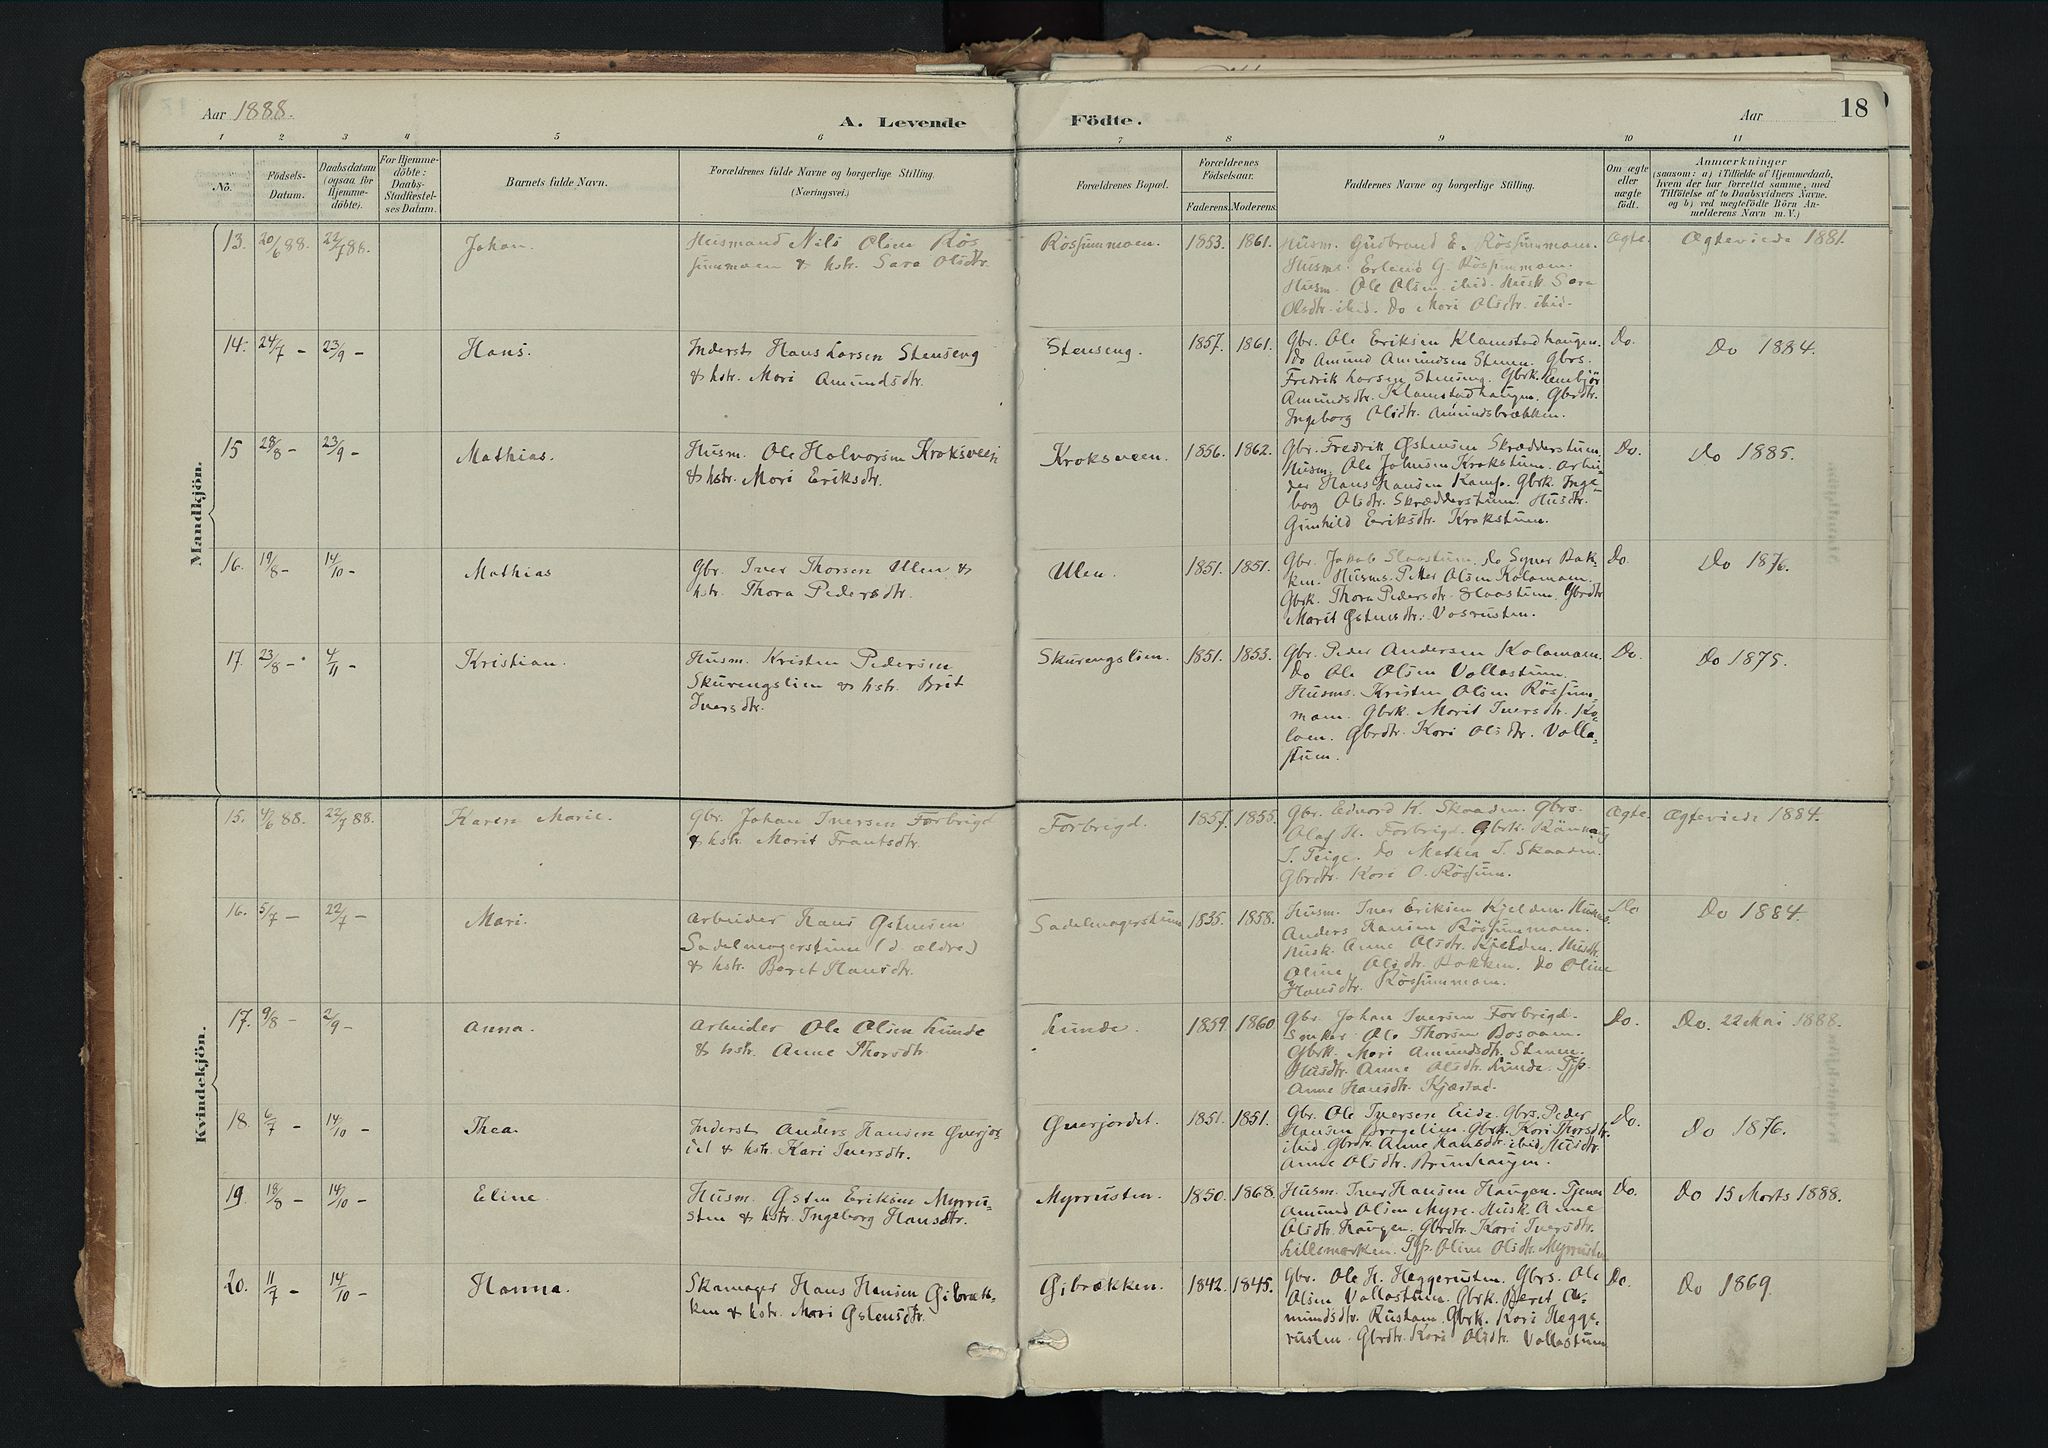 Aar 1888.
A. Levende
Födte.
Aar
18
1 2 3 4 5 6 7 8 9 10 11
No.
Födsels-
Datum.
Daabsdatum
(ogsaa for
Hjemme-
döbte).
For Hjemme-
döbte:
Daabs-
Stadfæstel-
ses Datum.
Barnets fulde Navn.
Forældrenes fulde Navne og borgerlige Stilling.
(Næringsvei.)
Forældrenes Bopæl.
Forældrenes
Födselsaar.
Faderens. Moderens.
Faddernes Navne og borgerlige Stilling.
Om ægte
eller
uægte
födt.
Anmærkninger
(saasom: a) i Tilfælde af Hjemmedaab,
hvem der har forrettet samme, med
Tilföielse af to Daabsvidners Navne,
og b) ved uægtefödte Börn An-
melderens Navn m. V.)
Mandkjön.
13. 20/6 88. 22/7 88. Johan.
Husmand Nils Olsen Røs
summoen & hstr. Sara Olsdtr.
Røssummoen. 1853. 1861.
Husm. Gudbrand E. Røssummoen.
Husms. Erland G. Røssummoen.
Husm. Ole Olsen ibid. Husk. Sara
Olsdtr. ibid. Do Mari Olsdtr. ibid.
Ægte. Ægteviede 1881.
14. 24/7 – 23/9 – Hans.
Inderst Hans Larsen Stenseng
& hstr. Mari Amundsdtr.
Stenseng. 1857. 1861.
Gbr. Ole Eriksen Klamstadhaugen.
Do Amund Amundsen Stenen. Gbrs.
Fredrik Larsen Stenseng. Gbrk. Embjør
Amundsdtr. Klamstadhaugen. Gbrdtr.
Ingeborg Olsdtr. Amundsbrækken.
Do. Do 1884.
15 28/8 – 23/9 – Mathias.
Husm. Ole Halvorsen Kroksveen
& hstr. Mari Eriksdtr.
Kroksveen. 1856. 1862.
Gbr. Fredrik Østensen Skrædderstuen.
Husm. Ole Johnsen Krokstuen. Arbei-
der Hans Hansen Kamp. Gbrk. Inge-
borg Olsdtr. Skrædderstuen. Husdtr.
Gunhild Eriksdtr. Krokstuen.
Do. Do 1885.
16. 19/8 – 14/10 – Mathias
Gbr. Iver Thorsen Ulen &
hstr. Thora Pedersdtr.
Ulen. 1851. 1851.
Gbr. Jakob Slaastuen. Do Syver Bak-
ken. Husms. Petter Olsen Kolomoen.
Gbrk. Thora Pedersdtr. Slaastuen. Gbrdtr
Marit Østensdtr. Vosrusten.
Do. Do 1876.
17. 23/8 – 4/11 – Kristian.
Husm. Kristen Pedersen
Skurengslien & hstr. Brit
Iversdtr.
Skurengslien. 1851. 1853.
Gbr. Peder Andersen Kolomoen.
Do Ole Olsen Vollastuen.
Husms. Kristen Olsen Røssum-
moen. Gbrk. Marit Iversdtr. Ko-
loen. Gbrdtr. Kari Olsdtr. Volla-
stuen.
Do. Do 1875.
Kvindekjön.
15. 4/6 88. 22/7 88. Karen Marie.
Gbr. Johan Iversen Forbrigd
& hstr. Marit Frantsdtr.
Forbrigd. 1857. 1855.
Gbr. Edvard K. Skaaden. Gbrs.
Olaf H. Forbrigd. Gbrk. Rønnaug
I. Teige. Do Mathea I. Skaaden.
Gbrdtr. Kari O. Røssum.
Ægte. Ægteviede 1884.
16. 5/7 – 22/7 – Mari.
Arbeider Hans Østensen
Sadelmagerstuen (d. ældre)
& hstr. Beret Hansdtr.
Sadelmagerstuen 1835. 1858.
Husm. Iver Eriksen Kjelden. Husms.
Anders Hansen Røssummoen.
Husk. Anne Olsdtr. Kjelden. Husdtr.
Oline Olsdtr. Bakken. Do Oline
Hansdtr. Røssummoen.
Do Do 1884.
17. 9/8 – 2/9 – Anna.
Arbeider Ole Olsen Lunde
& hstr. Anne Thorsdtr.
Lunde. 1859. 1860
Gbr. Johan Iversen Forbrigd.
Ole Thorsen
Gbrk. Mari Amundsdtr. Stenen.
Husdtr. Anne Olsdtr. Lunde. Tjp.
Anne Hansdtr. Kjæstad.
Do. Do. 22 Mai 1888.
18. 6/7 – 14/10 – Thea
Inderst Anders Hansen Gverjor
det & hstr. Kari Iversdtr.
Gverjordet. 1851. 1851.
Gbr. Ole Iversen Eide. Gbrs. Peder
Hansen Bragelien. Gbrk. Kari Thorsdtr.
ibid. Gbrdtr. Anne Hansdtr ibid. Husdtr.
Anne Olsdtr. Brunhaugen.
Do. Do 1876.
19. 18/8 – 14/10 – Eline.
Husm. Østen Eriksen Myrru-
sten & hstr. Ingeborg Hansdtr.
Myrrusten. 1850. 1868.
Husm. Iver Hansen Haugen. Tjener
Amund Olsen Myre. Husk. Anne
Olsdtr. Haugen. Gbrdtr. Kari Iversdtr.
Lillemarken. Tjp. Oline Olsdtr. Myrrusten
Do. Do 15 Marts 1888.
20. 11/7 – 14/10 – Hanna.
Skomager Hans Hansen Gibræk-
ken & hstr. Mari Østensdtr.
Gibrækken. 1842. 1845.
Gbr. Ole H. Heggerusten. Gbrs. Ole
Olsen Vollastuen. Gbrk. Beret A-
mundsdtr. Rustaen. Gbrk. Kari Hegge-
rusten. Gbrdtr. Kari Olsdtr. Vollastuen
Do. Do 1869.